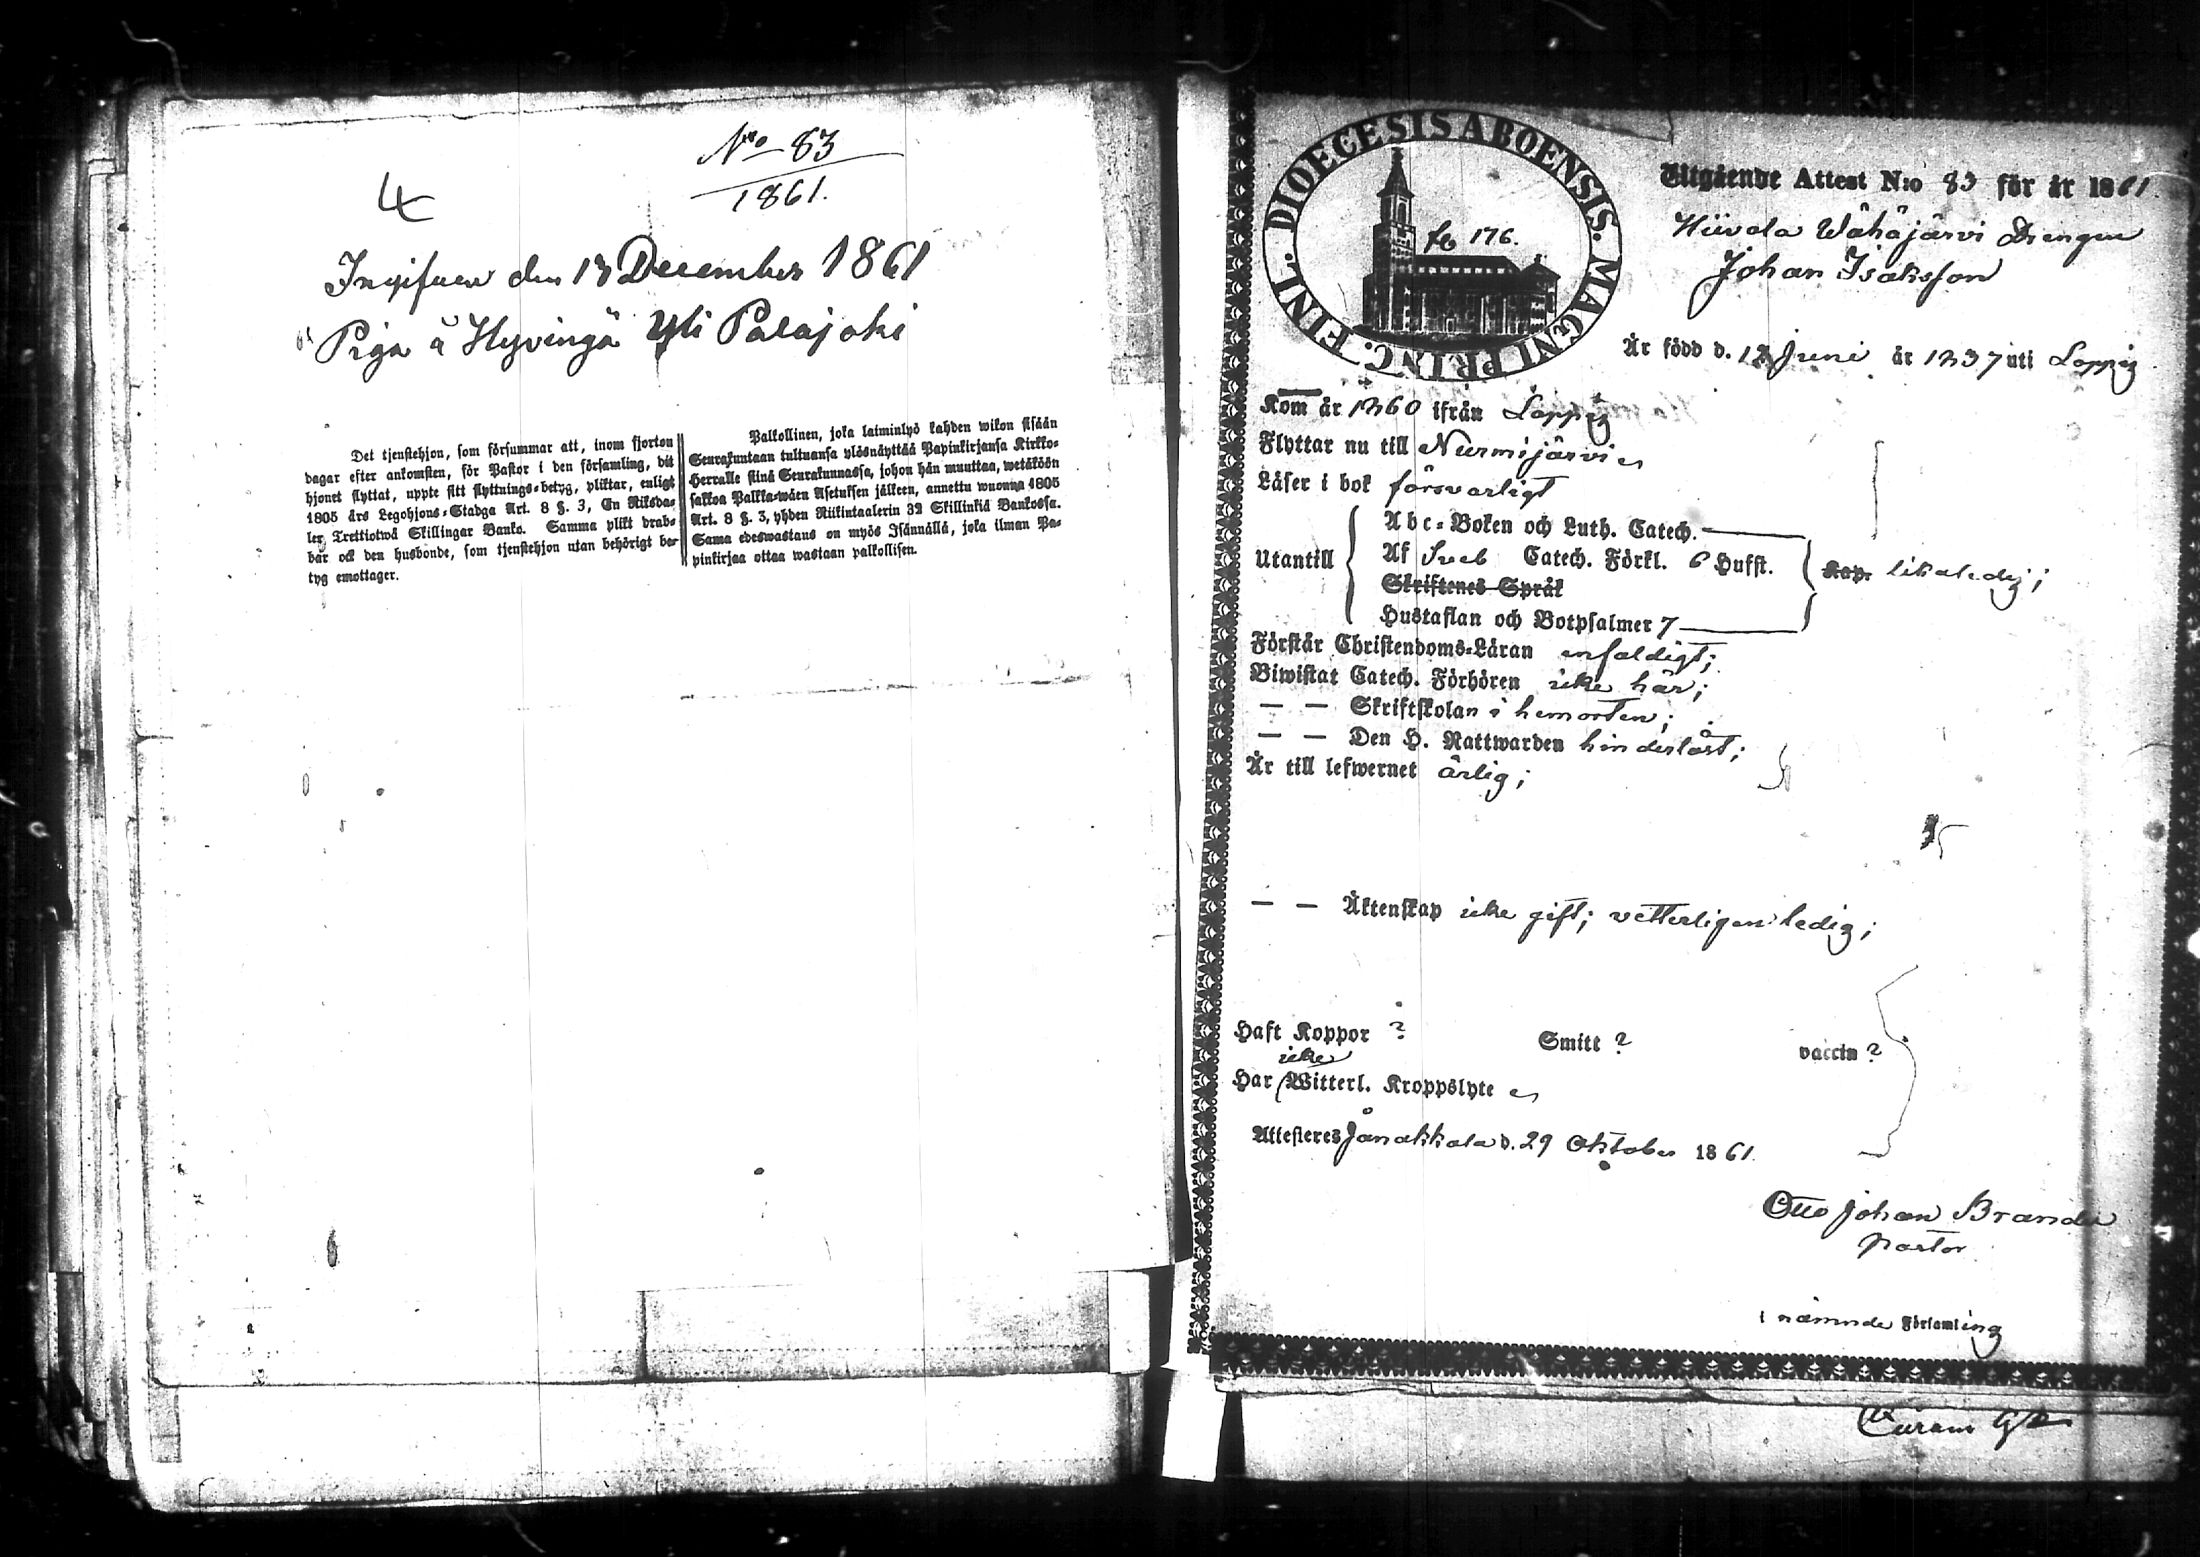 No 83
1861.
4
Ingifven den 13 December 1861
Piga å Hyvingä Yli Palajoki
Det tjenstehjon, som försummar att, inom fjorton
dagar efter ankomsten, för Pastor i den församling, dit
hjonet flyttat, uppte sitt flyttnings-betyg, pliktar, enligt
1805 års Legohjons-Stadga Art. 8 §. 3, En Riksda-
ler Trettiotwå Skillingar Banko. Samma plikt drab-
bar ock den husbonde, som tjenstehjon utan behörigt be-
tyg emottager.
Palkollinen, joka laiminlyö kahden wikon sisään
Seurakuntaan tultuansa ylösnäyttää Papinkirjansa Kirkko-
Herralle siinä Seurakunnassa, johon hän muuttaa, wetäköön
sakkoa Palkka-wäen Asetuksen jälkeen, annettu wuonna 1805
Art. 8 §. 3, yhden Riikintaalerin 32 Skillinkiä Bankossa.
Sama edeswastaus on myös Isännällä, joka ilman Pa-
pinkirjaa ottaa wastaan palkollisen.
DIOECESIS ABOENSIS. MAGNI PRINC. FINL.
fo 176.
Utgående Attest N:o 83 för år 1861.
Hiivola Wähäjärvi Drengen
Johan Isaksson
Är född d. 12 Juni år 1837 uti Loppis
Kom år 1860 ifrån Loppis
Flyttar nu till Nurmijärvi
Läser i bok försvarligt
Utantill
Abc-Boken och Luth. Catech.
Af Sveb Catech. Förkl. 6 Hufst.
Skriftenes Språk
Hustaflan och Botpsalmer 7
Kap. likaledes;
Förstår Christendoms-Läran enfaldigt;
Biwistat Catech. Förhören icke här;
— — Skriftskolan i hemorten;
— — Den H. Nattwarden hinderlöst;
Är till lefwernet ärlig;
— — Äktenskap icke gift; vetterligen ledig;
Haft Koppor ? Smitt ? vaccin ?
icke
Har Witterl. Kroppslyte
Attesteres Janakkala d. 29 Oktober 1861.
Otto Johan Brander
Pastor
i nämnde Församling